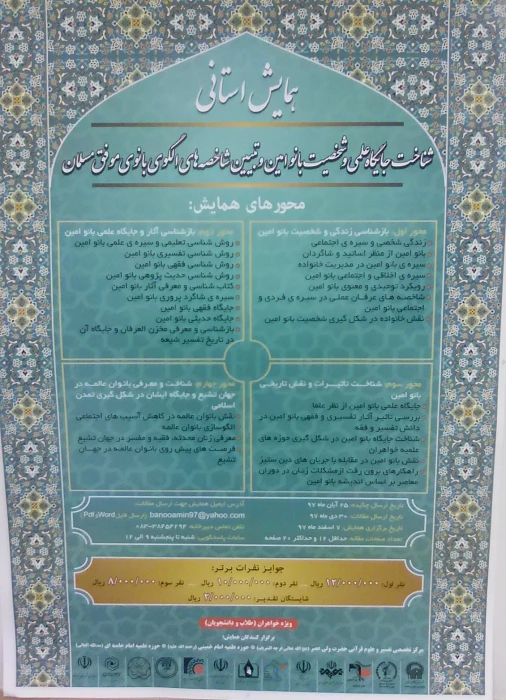 همایش استانی
شناخت جایگاه علمی و شخصیت بانو امین و تبیین شاخصه های الگوی بانوی موفق مسلمان
محورهای همایش:
محور اول: بازشناسی زندگی و شخصیت بانو امین
زندگی شخصی و سیره ی اجتماعی
بانو امین از منظر اساتید و شاگردان
سیره ی بانو امین در مدیریت خانواده
سیره ی اخلاقی و اجتماعی بانو امین
رویکرد توحیدی و معنوی بانو امین
شاخصه های عرفان عملی در سیره ی فردی و
اجتماعی بانو امین
نقش خانواده در شکل گیری شخصیت بانو امین
محور دوم: بازشناسی آثار و جایگاه علمی بانو امین
روش شناسی تعلیمی و سیره ی علمی بانو امین
روش شناسی تفسیری بانو امین
روش شناسی فقهی بانو امین
روش شناسی حدیث پژوهی بانو امین
کتاب شناسی و معرفی آثار بانو امین
سیره ی شاگرد پروری بانو امین
جایگاه فقهی بانو امین
جایگاه حدیثی بانو امین
بازشناسی و معرفی مخزن العرفان و جایگاه آن
در تاریخ تفسیر شیعه
محور سوم: شناخت تاثیرات و نقش تاریخی
بانو امین
جایگاه علمی بانو امین از نظر علما
بررسی تاثیر آثار تفسیری و فقهی بانو امین در
دانش تفسیر و فقه
شناخت جایگاه بانو امین در شکل گیری حوزه های
علمیه خواهران
نقش بانو امین در مقابله با جریان های دین ستیز
راهکارهای برون رفت ازمشکلات زنان در دوران
معاصر بر اساس اندیشه بانو امین
محور چهارم: شناخت و معرفی بانوان عالمه در
جهان تشیع و جایگاه ایشان در شکل گیری تمدن
اسلامی
نقش بانوان عالمه در کاهش آسیب های اجتماعی
الگوسازی بانوان عالمه
معرفی زنان محدثه، فقیه و مفسر در جهان تشیع
فرصت های پیش روی بانوان عالمه در جهان
تشیع
تاریخ ارسال چکیده: ۲۵ آبان ماه ۹۷
تاریخ ارسال مقالات: ۳۰ دی ماه ۹۷
تاریخ برگزاری همایش: ۷ اسفند ماه ۹۷
تعداد صفحات مقاله: حداقل ۱۲ و حداکثر ۲۰ صفحه
آدرس ایمیل همایش جهت ارسال مقالات:
banooamin97@yahoo.com ارسال فایل Word و Pdf
تلفن تماس دبیرخانه: ۳۸۲۵۳۲۹۴-۰۸۳
ساعات پاسخگویی: شنبه تا پنج‌شنبه ۹ الی ۱۲
جوایز نفرات برتر:
نفر اول: ۱۲/۰۰۰/۰۰۰ ریال ... نفر دوم: ۱۰/۰۰۰/۰۰۰ ریال ... نفر سوم: ۸/۰۰۰/۰۰۰ ریال
شایستگان تقدیر: ۲/۰۰۰/۰۰۰ ریال
ویژه خواهران (طلاب و دانشجویان)
برگزار کنندگان همایش:
مرکز تخصصی تفسیر و علوم قرآنی حضرت ولی عصر (عج الله تعالی فرجه الشریف) حوزه علمیه امام خمینی (رحمت الله علیه) حوزه علمیه امام خامنه ای (مدظله العالی)